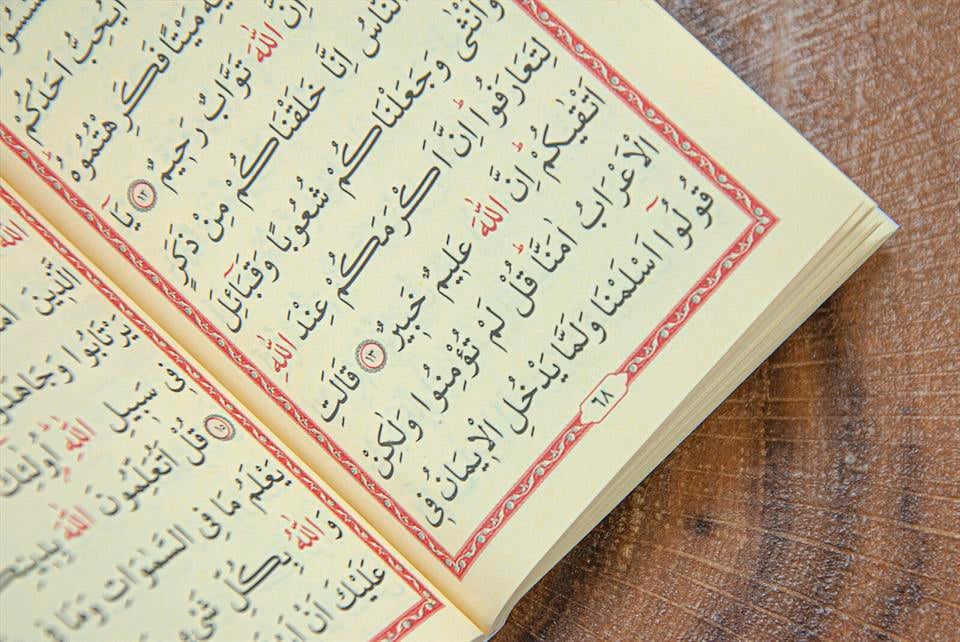 اَيُحِبُّ اَحَدُكُمْ
مَيْتًا فَكَرِهْتُمُوهُ
اِنَّ اللّٰهَ تَوَّابٌ رَحِيمٌ ﴿١٢﴾ يَٓا
النَّاسُ اِنَّا خَلَقْنَاكُمْ مِنْ ذَكَرٍ
وَاُنْثٰى وَجَعَلْنَاكُمْ شُعُوبًا وَقَبَٓائِلَ
لِتَعَارَفُوا اِنَّ اَكْرَمَكُمْ عِنْدَ اللّٰهِ
اَتْقٰيكُمْ اِنَّ اللّٰهَ عَلِيمٌ خَبِيرٌ ﴿١٣﴾ قَالَتِ
الْاَعْرَابُ اٰمَنَّا قُلْ لَمْ تُؤْمِنُوا وَلٰكِنْ
قُولُٓوا اَسْلَمْنَا وَلَمَّا يَدْخُلِ الْاِيمَانُ فِي
٦٨
اللّٰه
الَّذِينَ
يَرْتَابُوا وَجَاهَدُوا
فِي سَبِيلِ اللّٰهِ اُولٰٓئِكَ
﴿١٥﴾ قُلْ اَتُعَلِّمُونَ اللّٰهَ
يَعْلَمُ مَا فِي السَّمٰوَاتِ وَمَا فِي
وَاللّٰهُ بِكُلِّ شَيْءٍ
عَلَيْكَ اَنْ